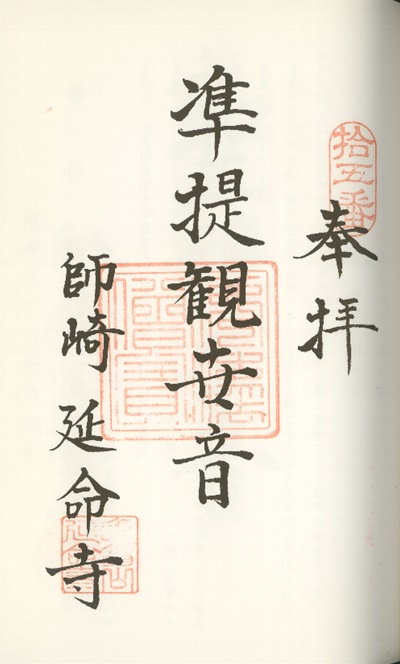 拾五番
奉拝
准提観世音
師崎 延命寺